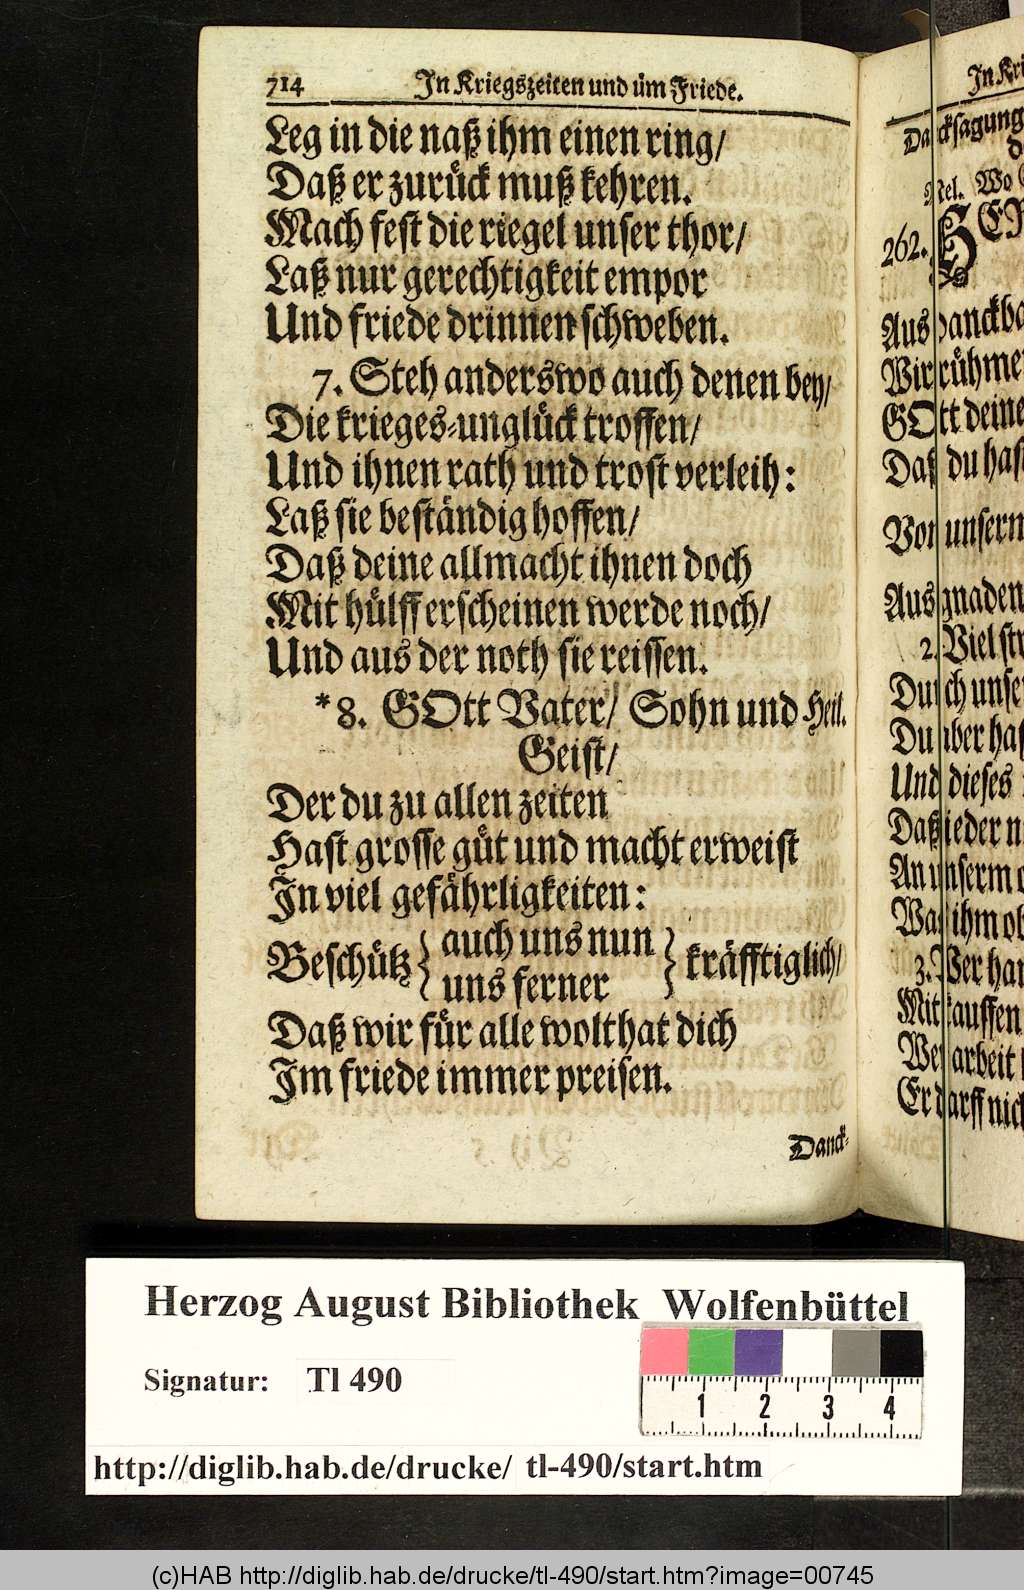 714 In Kriegszeiten und üm Friede.
Leg in die naß ihm einen ring/
Daß er zurück muß kehren.
Mach fest die riegel unser thor/
Laß nur gerechtigkeit empor
Und friede drinnen schweben.
7. Steh anderswo auch denen bey/
Die krieges-unglück troffen/
Und ihnen rath und trost verleih:
Laß sie beständig hoffen/
Daß deine allmacht ihnen doch
Mit hülff erscheinen werde noch/
Und aus der noth sie reissen.
*8. GOtt Vater/ Sohn und Heil.
Geist/
Der du zu allen zeiten
Hast grosse güt und macht erweist
In viel gefährligkeiten:
Beschütz { auch uns nun } kräfftiglich/
uns ferner
Daß wir für alle wolthat dich
Im friede immer preisen.
Danck-
In
Dancksagung
Mel. Wo
262.
Aus
Wir rühme
GOtt deine
Daß du hast
Von unserm
Aus gnaden
2. Viel
Durch unse
Du aber hast
Und dieses
Daß ieder
An unserm
Was ihm
3. Wer
Mit kauffen
arbeit
Er darff
Herzog August Bibliothek Wolfenbüttel
Signatur: Tl 490
1 2 3 4
http://diglib.hab.de/drucke/ tl-490/start.htm
(c)HAB http://diglib.hab.de/drucke/tl-490/start.htm?image=00745